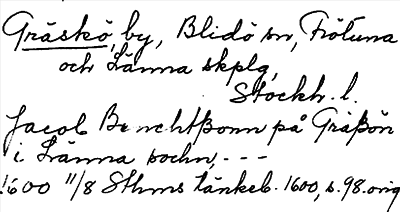 Gräskö, by, Blidö sn, Frötuna
och Länna skplg,
Stockh. l.
Jacob Benchtßonn på Gräßön
i Länna sochn, - - -
1600 11/8 Sthms tänkeb. 1600, s. 98. orig